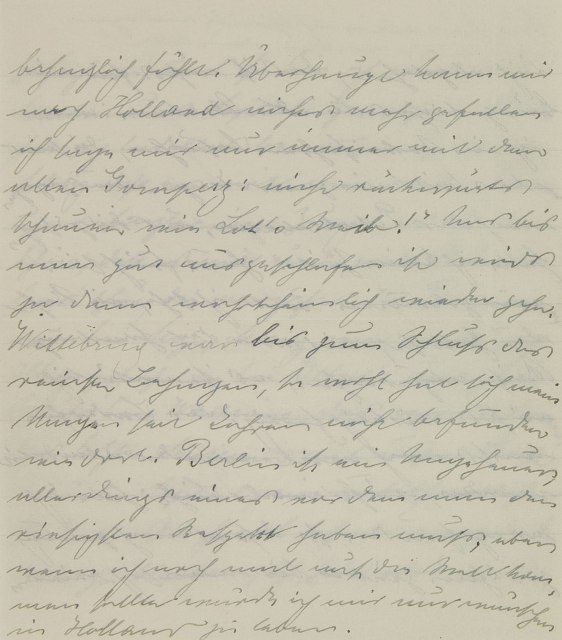 behaglich fühlt. Überhaupt kann mir
nach Holland nichts mehr gefallen
ich sage mir nur immer mit dem
alten Gomperz: nicht rückwärts
schauen wie Lot's Weib!" Und bis
man gut ausgeschlafen ist wird's
ja dann wahrscheinlich wieder gehn.
war bis zum Schluss das
reinste so wohl hat sich mein
Magen seit Jahren nicht befunden
wie dort. Berlin ist ein Ungeheuer,
allerdings eines vor dem man den
riesigsten Respekt haben muss, aber
wenn ich noch mal auf die Welt kom-
men sollte würde ich mir nur wünschen
in Holland zu leben.